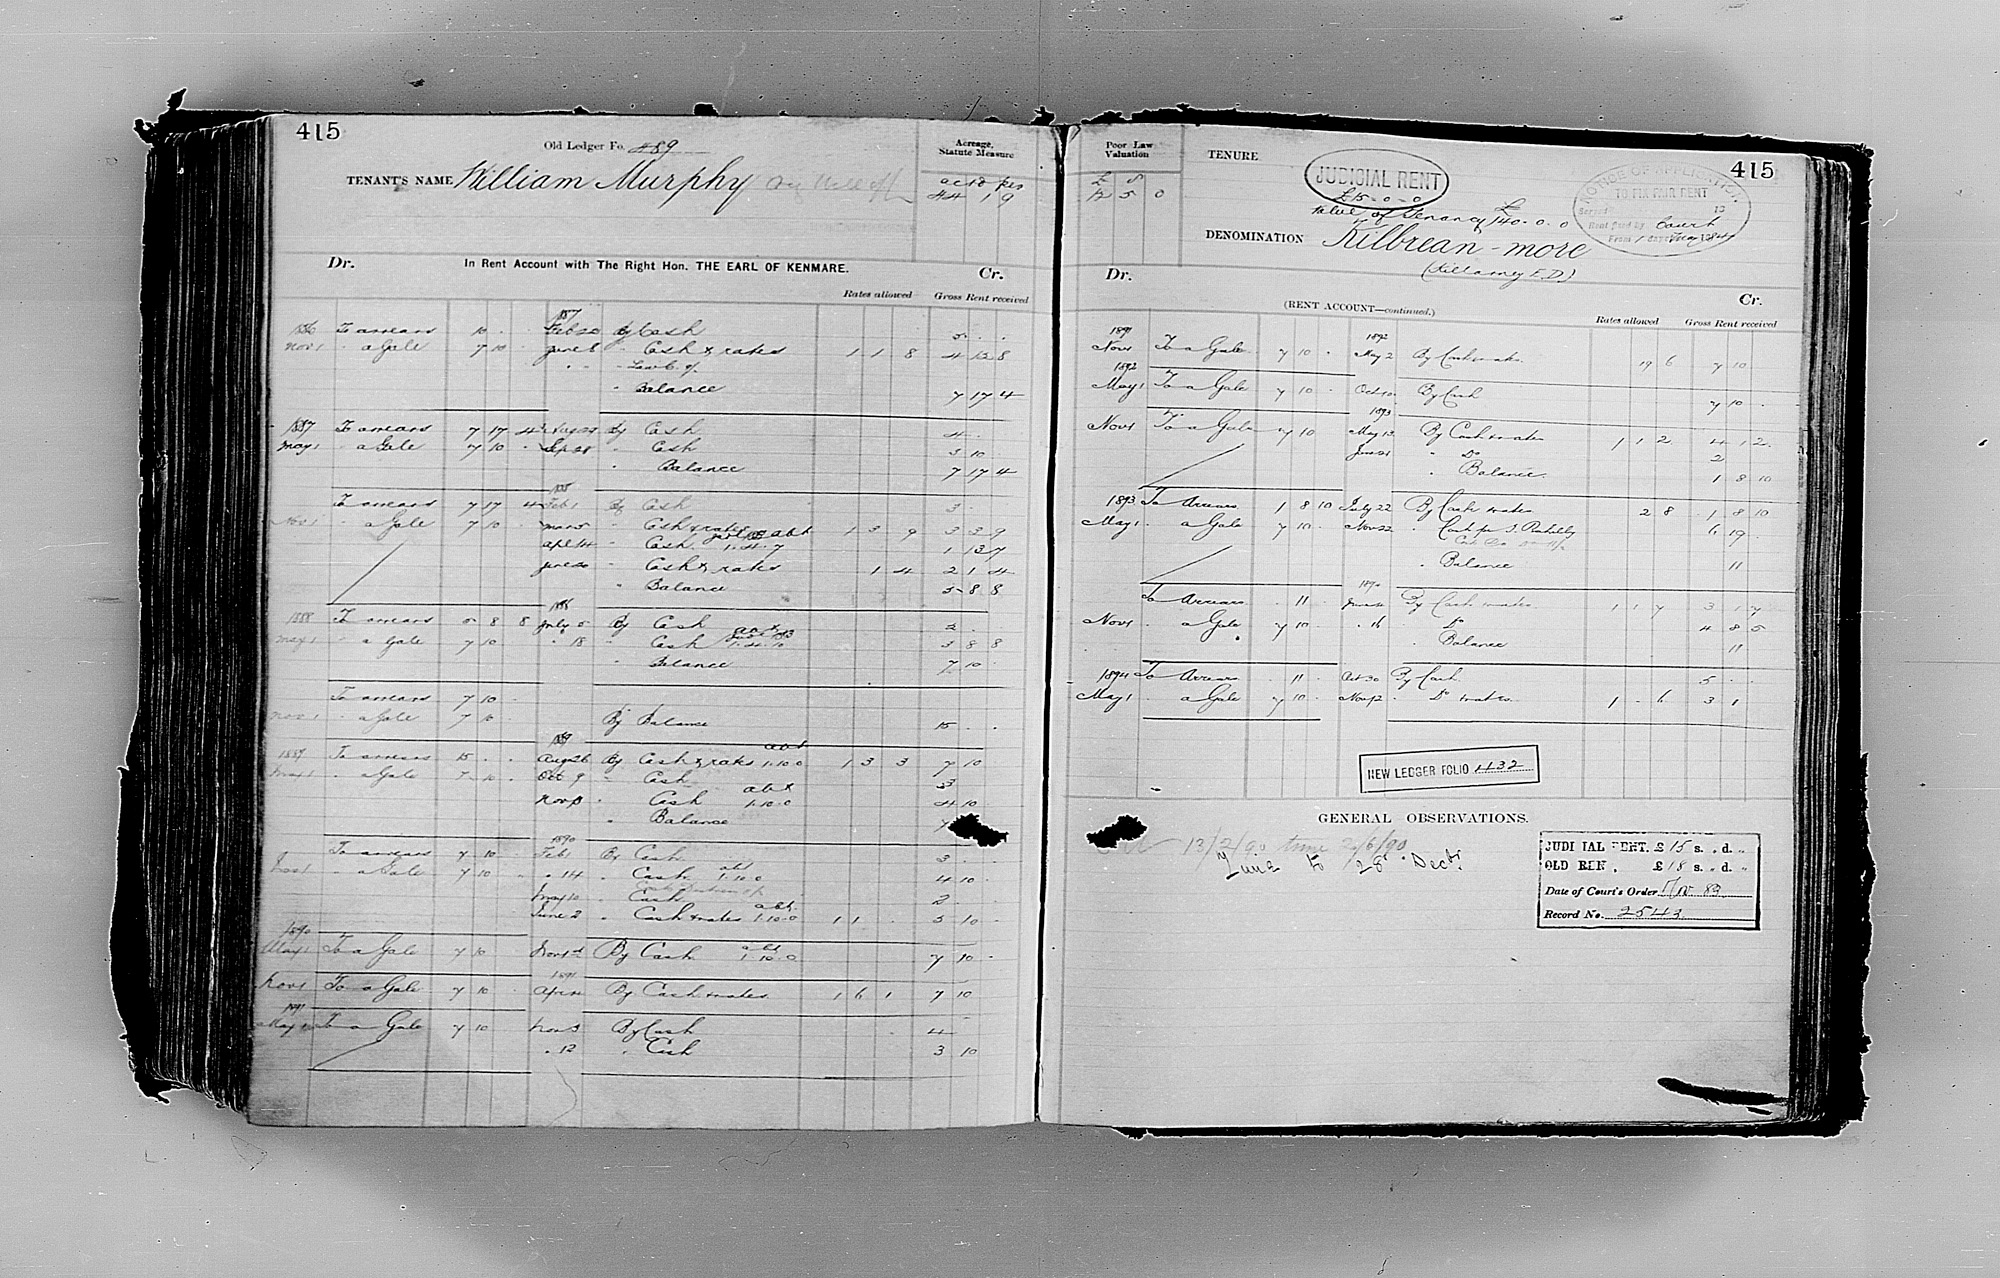 415
Old Ledger Fo. 489
TENANT'S NAME William Murphy
Acreage, Statute Measure
44 1 9
In Rent Account with The Right Hon. THE EARL OF KENMARE.
Dr. Cr.
Rates allowed Gross Rent received
1886 To arrears 10 . . Feb 22 By Cash 5 . .
Nov 1 " a Gale 7 10 . June 8 " Cash & rates 1 1 8 4 12 8
" Balance 7 17 4
1887 To arrears 7 17 4 By Cash 4 . .
May 1 " a Gale 7 10 . Sep 28 " Cash 3 10
" Balance 7 17 4
To arrears 7 17 4 Feb 1 By Cash 3 .
Nov 1 " a Gale 7 10 . Mar 5 " Cash & rates 1 3 9 3 3 9
Apl 14 " Cash 1.4.7 1 13 7
June 20 " Cash & rates 1 4 2 1 4
" Balance 5 8 8
1888 To arrears 5 8 8 July 5 By Cash 2 .
May 1 " a Gale 7 10 " 18 " Cash 1.4.10 3 8 8
" Balance 7 10
To arrears 7 10
Nov 1 " a Gale 7 10 By Balance 15 . .
1889
1889 To arrears 15 . . Aug 26 By Cash & rates 1.10.0 1 3 3 7 10
May 1 " a Gale 7 10 Oct 9 " Cash 3
Nov " Cash abt 1.10.0 4 10
" Balance 7
1890
To arrears 7 10 Feb 1 By Cash 3 .
Nov 1 " a Gale 7 10 " 14 " Cash abt 1.10.0 4 10
May 10 " Cash 2
June 2 " Cash & rates abt 1.10.0 1 1 . 5 10
1890
May 1 To a Gale 7 10 Nov By Cash abt 1.10.0 7 10 .
1891
Nov 1 To a Gale 7 10 By Cash & rates 1 6 1 7 10
1891
May 1 To a Gale 7 10 Nov 3 By Cash 4
" 12 " Cash 3 10
415
Poor Law Valuation
£ s
12 5 0
TENURE
JUDICIAL RENT
£15-0-0
Value of Tenancy £140.0.0
NOTICE OF APPLICATION
TO FIX FAIR RENT
Served 18
Rent fixed by Court
DENOMINATION Kilbrean-more
(Killarney E.D)
Dr. Cr.
(RENT ACCOUNT—continued.)
Rates allowed Gross Rent received
1891 1892
Nov 1 To a Gale 7 10 . May 2 By Cash & rates 19 6 7 10
1892
May 1 To a Gale 7 10 . Oct 10 By Cash 7 10 .
1893
Nov 1 To a Gale 7 10 May 13 By Cash & rates 1 1 2 4 1 2
June 21 " Do 2
" Balance 1 8 10
1893 To Arrears 1 8 10 July 22 By Cash & rates 2 8 1 8 10
May 1 " a Gale 7 10 . Nov 22 " Cash per 6 19 .
" Balance 11
To Arrears . 11 . By Cash & rates 1 1 7 3 1 7
Nov 1 " a Gale 7 10 " 16 " Do 4 8 5
" Balance 11
1894 To Arrears . 11 . Oct 30 By Cash 5 . .
May 1 " a Gale 7 10 . Nov 12 " Do & rates 1 . 6 3 1
NEW LEDGER FOLIO 1132
GENERAL OBSERVATIONS.
13/2/90 time 2/6/90
Time to 28 Decr.
JUDICIAL RENT. £ 15 s. " d. "
OLD RENT, £ 18 s. " d. "
Date of Court's Order
Record No. 2543